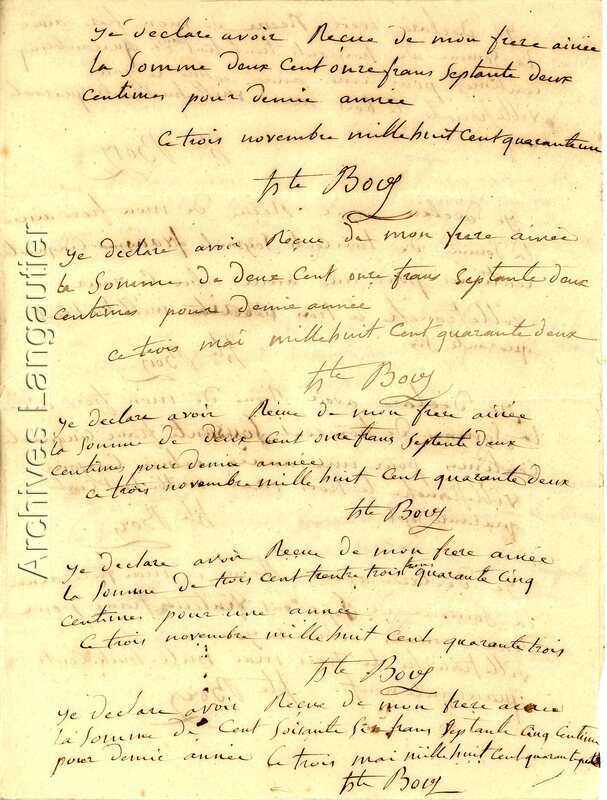 ye declare avoir Reçue de mon frere ainée
la Somme deux Cent onre frans Septante deux
Centimes pour demie année
Ce trois novembre mille huit Cent quarante un
hte Bovy
ye declare avoir Reçue de mon frere ainée
la Somme de deux Cent onre frans Septante deux
Centimes pour demie année
Ce trois mai mille huit Cent quarante deux
hte Bovy
ye declare avoir Reçue de mon frere ainée
la Somme de deux Cent onre frans Septente deux
Centimes pour demie année
Ce trois novembre mille huit Cent quarante deux
hte Bovy
ye declare avoir Reçue de mon frere ainée
la Somme de trois Cent trentre trois frans quarante Cinq
Centimes pour une année
Ce trois novembre mille huit Cent quarante trois
hte Bovy
ye declare avoir Reçue de mon frere ainée
la Somme de Cent Soisante Six frans Septante Cinq Centimes
pour demie année Ce trois mai mille huit Cent quarante
hte Bovy
Archives Langautier